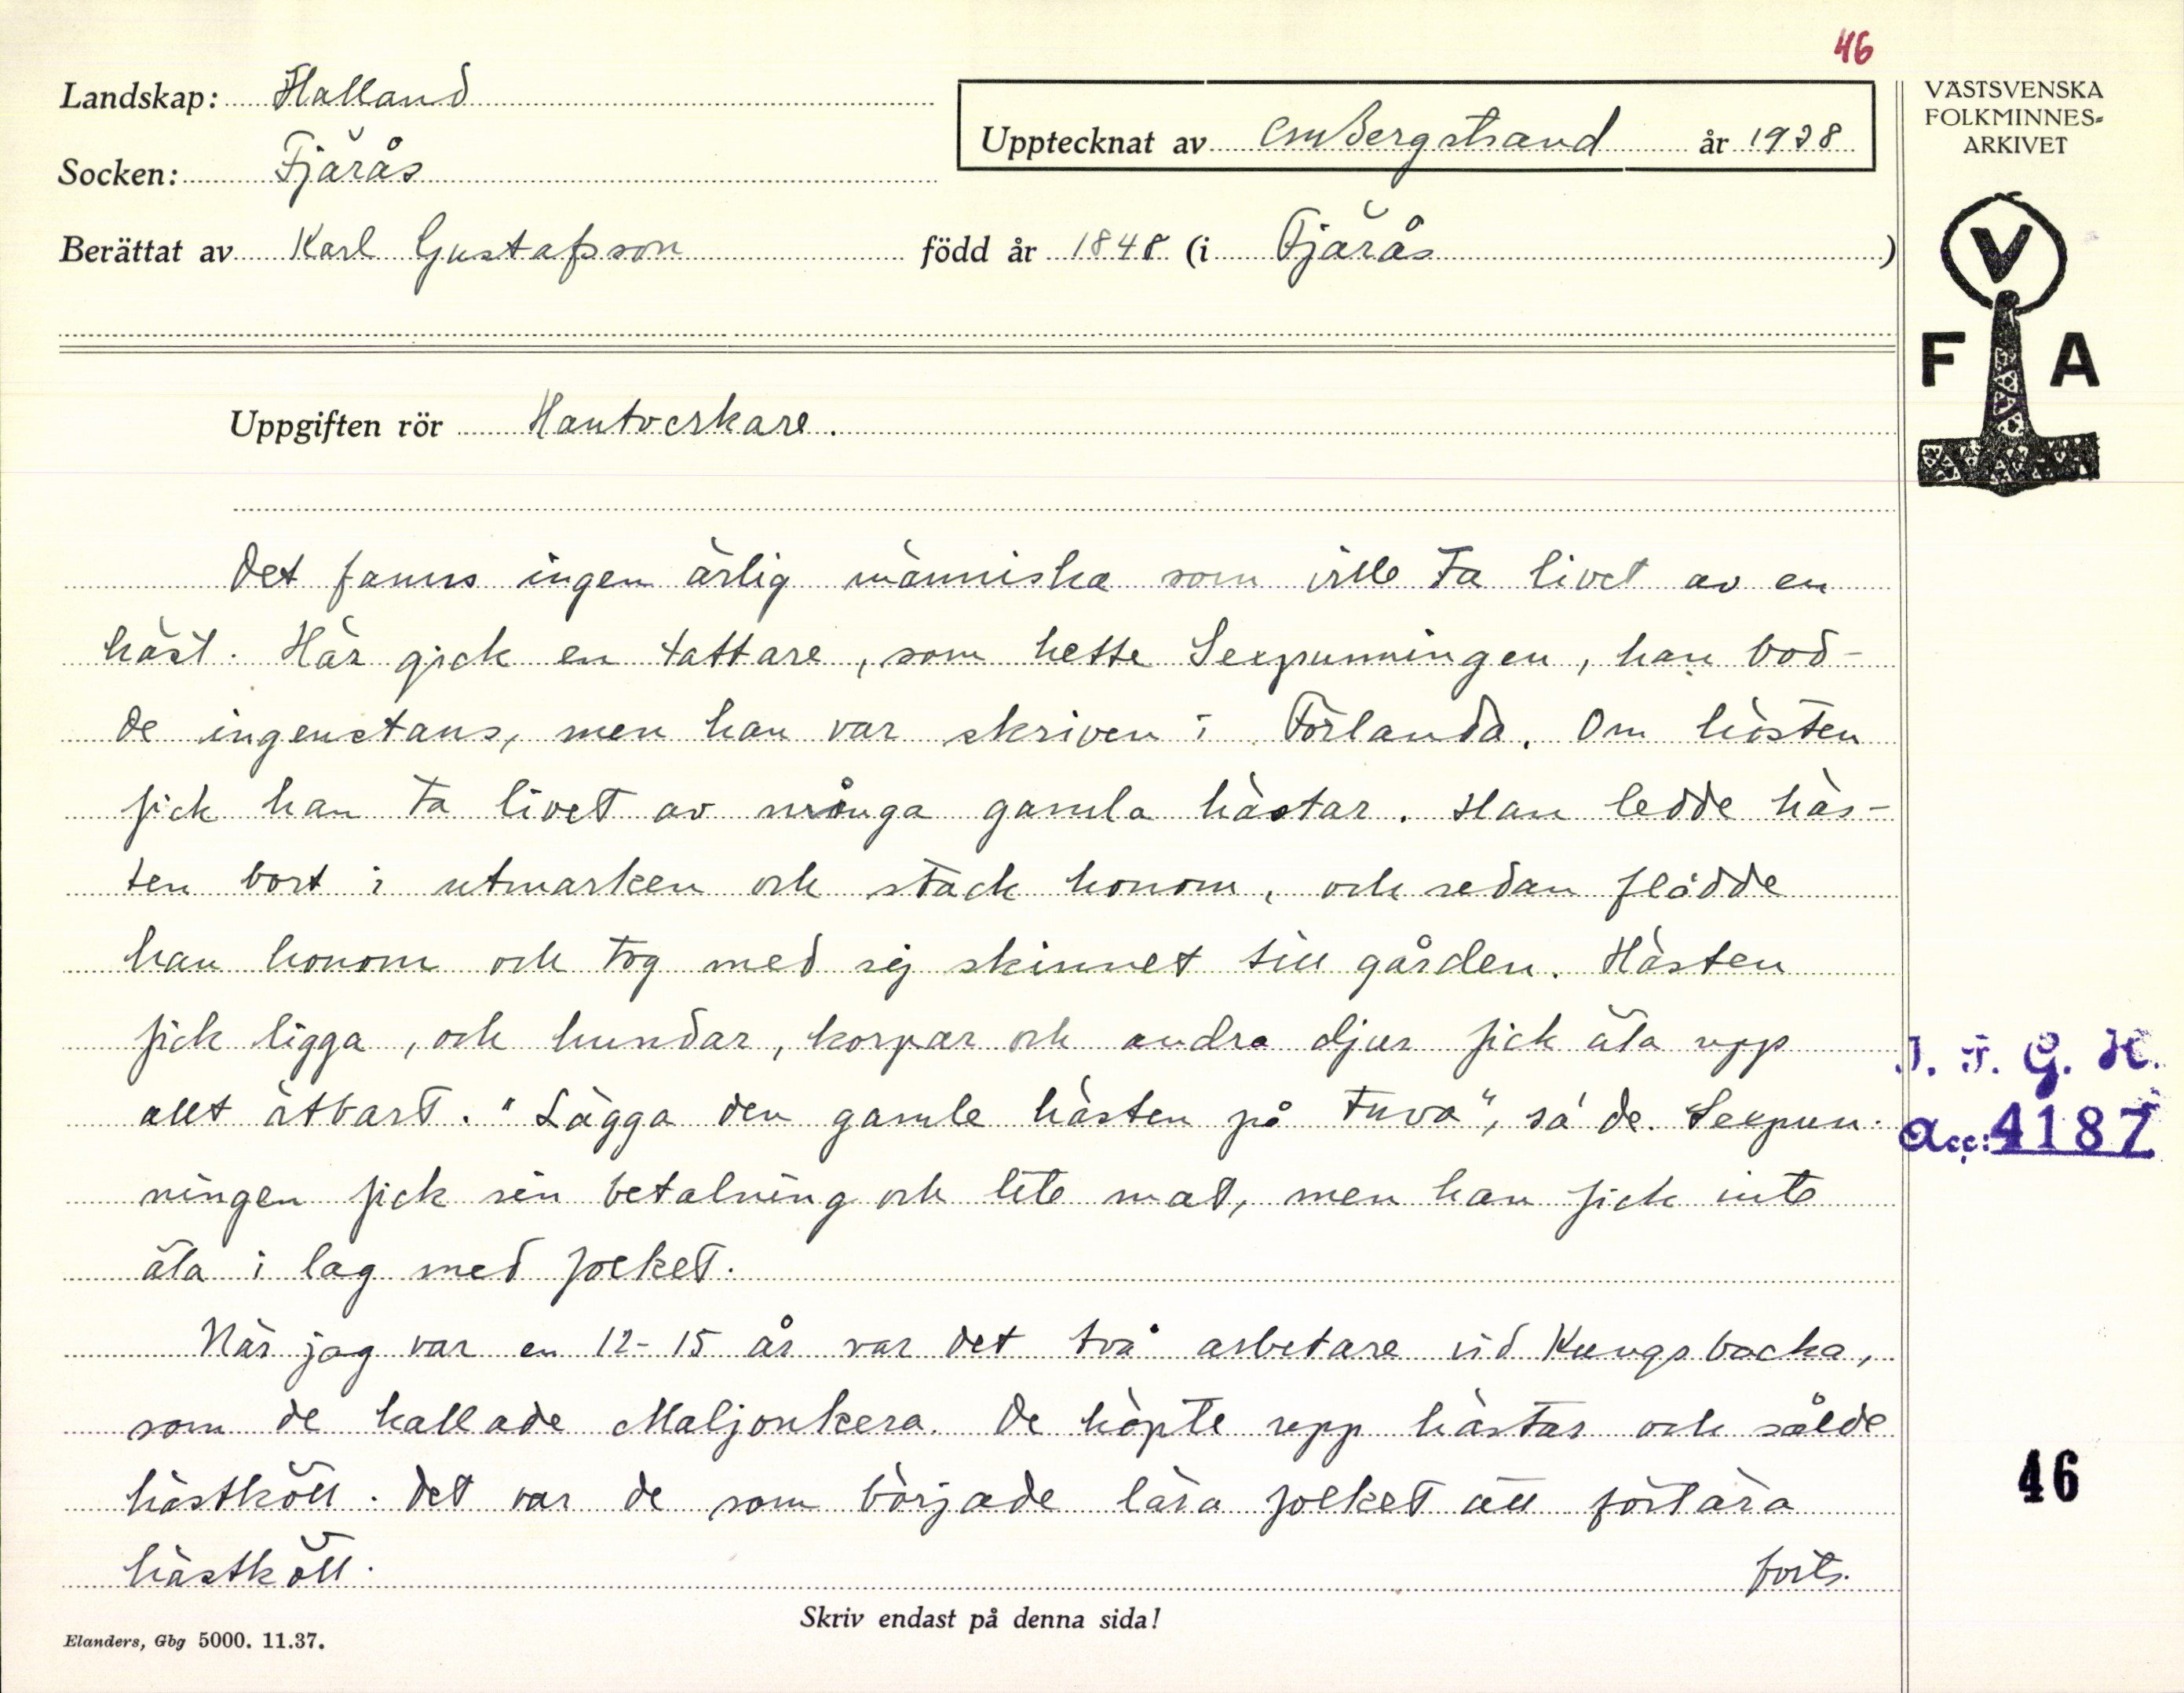 46
Landskap: Halland
Upptecknat av CMBergstrand år 1938
VÄSTSVENSKA
FOLKMINNES-
ARKIVET
Socken: Fjärås
Berättat av Karl Gustafsson född år 1848 (i Fjärås)
V
F A
Uppgiften rör Hantverkare.
Det fanns ingen ärlig människa som ville ta livet av en
häst. Här gick en tattare, som hette Sexpunningen, han bod-
de ingenstans, men han var skriven i Förlanda. Om hösten
fick han ta livet av många gamla hästar. Han ledde häs-
ten bort i utmarken och stack honom, och sedan flådde
han honom och tog med sej skinnet till gården. Hästen
fick ligga, och hundar, korpar och andra djur fick äta upp
allt ätbart. "Lägga den gamle hästen på tuva", sa' de. Sexpun-
ningen fick sin betalning och lite mat, men han fick inte
äta i lag med folket.
När jag var en 12-15 år var det två arbetare vid Kungsbacka,
som de kallade Maljonkera. De köpte upp hästar och sålde
hästkött. Det var de som började lära folket att förtära
hästkött. forts.
J. F. G. H.
Acc: 4187
46
Skriv endast på denna sida!
Elanders, Gbg 5000. 11.37.